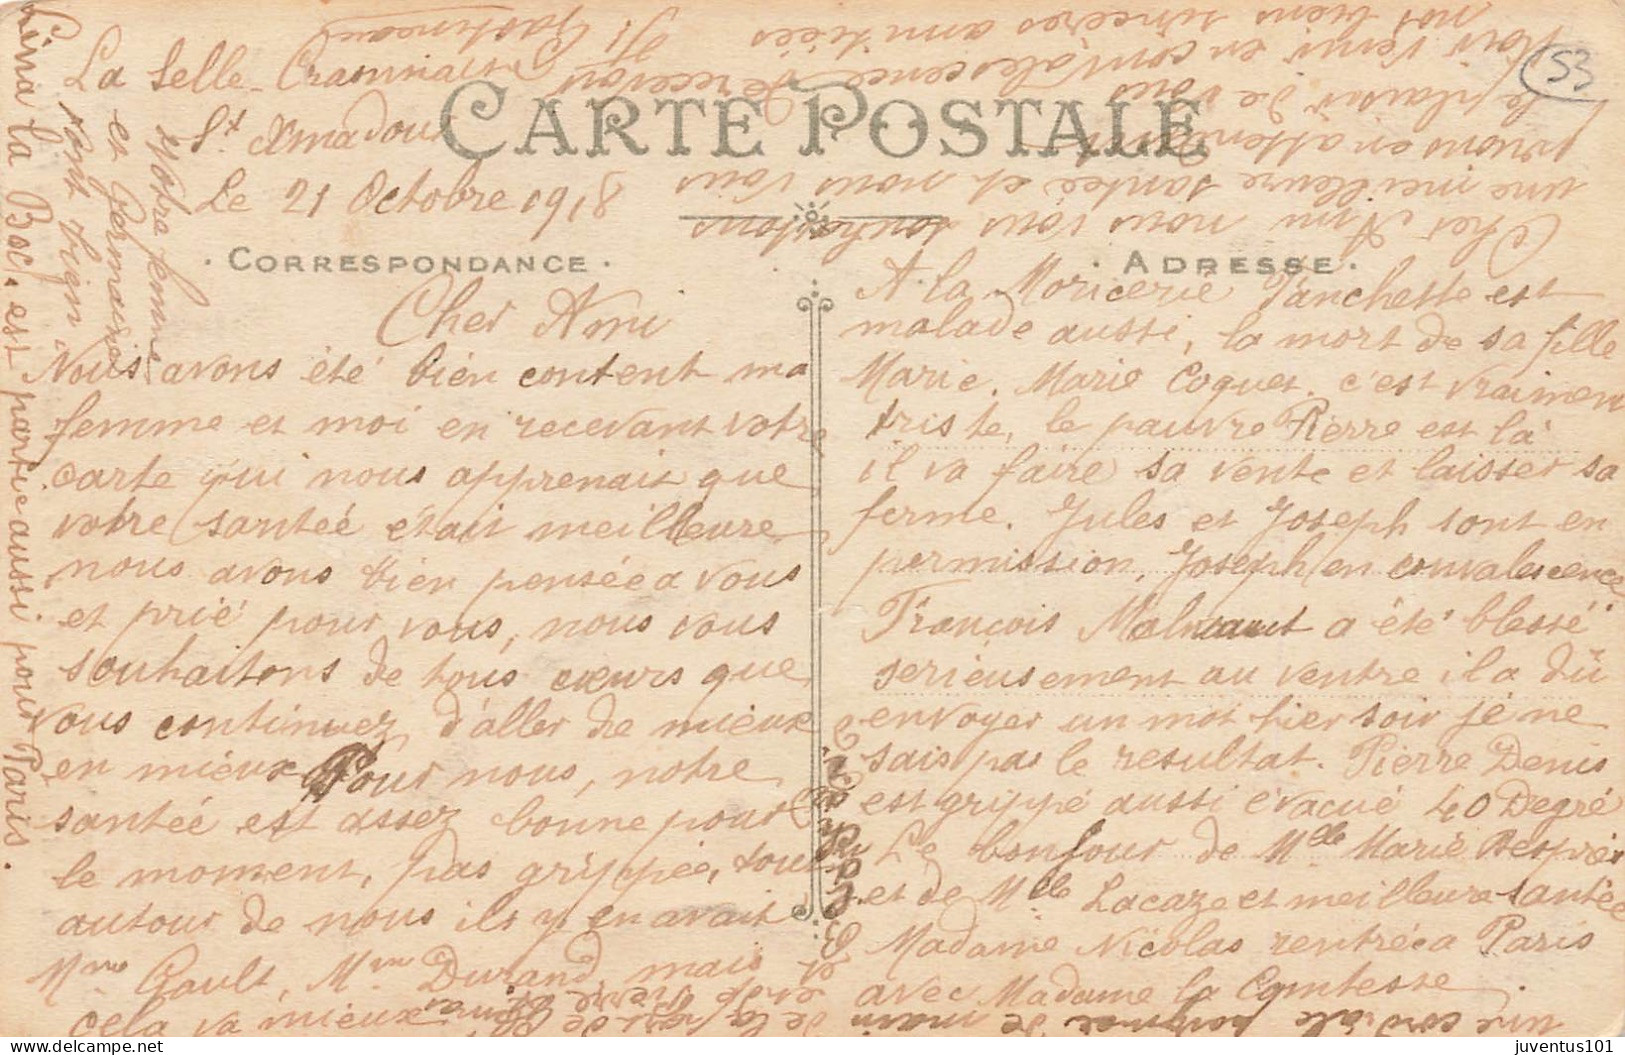 La Selle-Craonnaise
St Amadour
Le 21 Octobre 1918
CARTE POSTALE
CORRESPONDANCE
ADRESSE
53
Cher Ami
Nous avons été bien content ma
femme et moi en recevant votre
carte qui nous apprenait que
votre santée était meilleure
nous avons bien pensée a vous
et prié pour vous, nous vous
souhaitons de tous cœurs que
vous continuez d'aller de mieux
en mieux Pour nous, notre
santée est assez bonne pour
le moment, pas grippée, tout
autour de nous ils y en avait
Mme Gault, Mme Durand, mais
cela va mieux
A la Moricerie Panchette est
malade aussi, la mort de sa fille
Marie. Marie Coquet. c'est vraiment
triste, le pauvre Pierre est là
il va faire sa vente et laisser sa
ferme. Jules et Joseph sont en
permission, Joseph en convalescence
François a été blessé
serieusement au ventre il a dû
envoyer un mot hier soir je ne
sais pas le resultat. Pierre Denis
est grippé aussi évacué 40 Degré
Le bonjour de Mlle Marie Després
et de Mlle Lacaze et meilleure santée
Madame Nicolas rentrée a Paris
avec Madame la Comtesse
une cordiale poignée de main
de la part de
Cher Ami nous vous souhaitons
une meilleure santée et nous vous
prions en attendant
le plaisir de vous
voir venir en convalescence de recevoir
nos biens sincères amitiés
Votre femme
et Germaine
sont bien
Léna la Boc. est partie aussi pour Paris.
juventus101